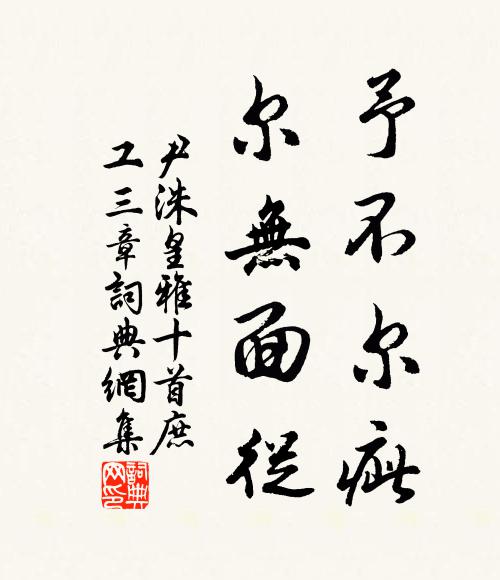 予不尔疵
尔無面從
尹洙皇雅十首庶
工三章詞典網集
詞典網印